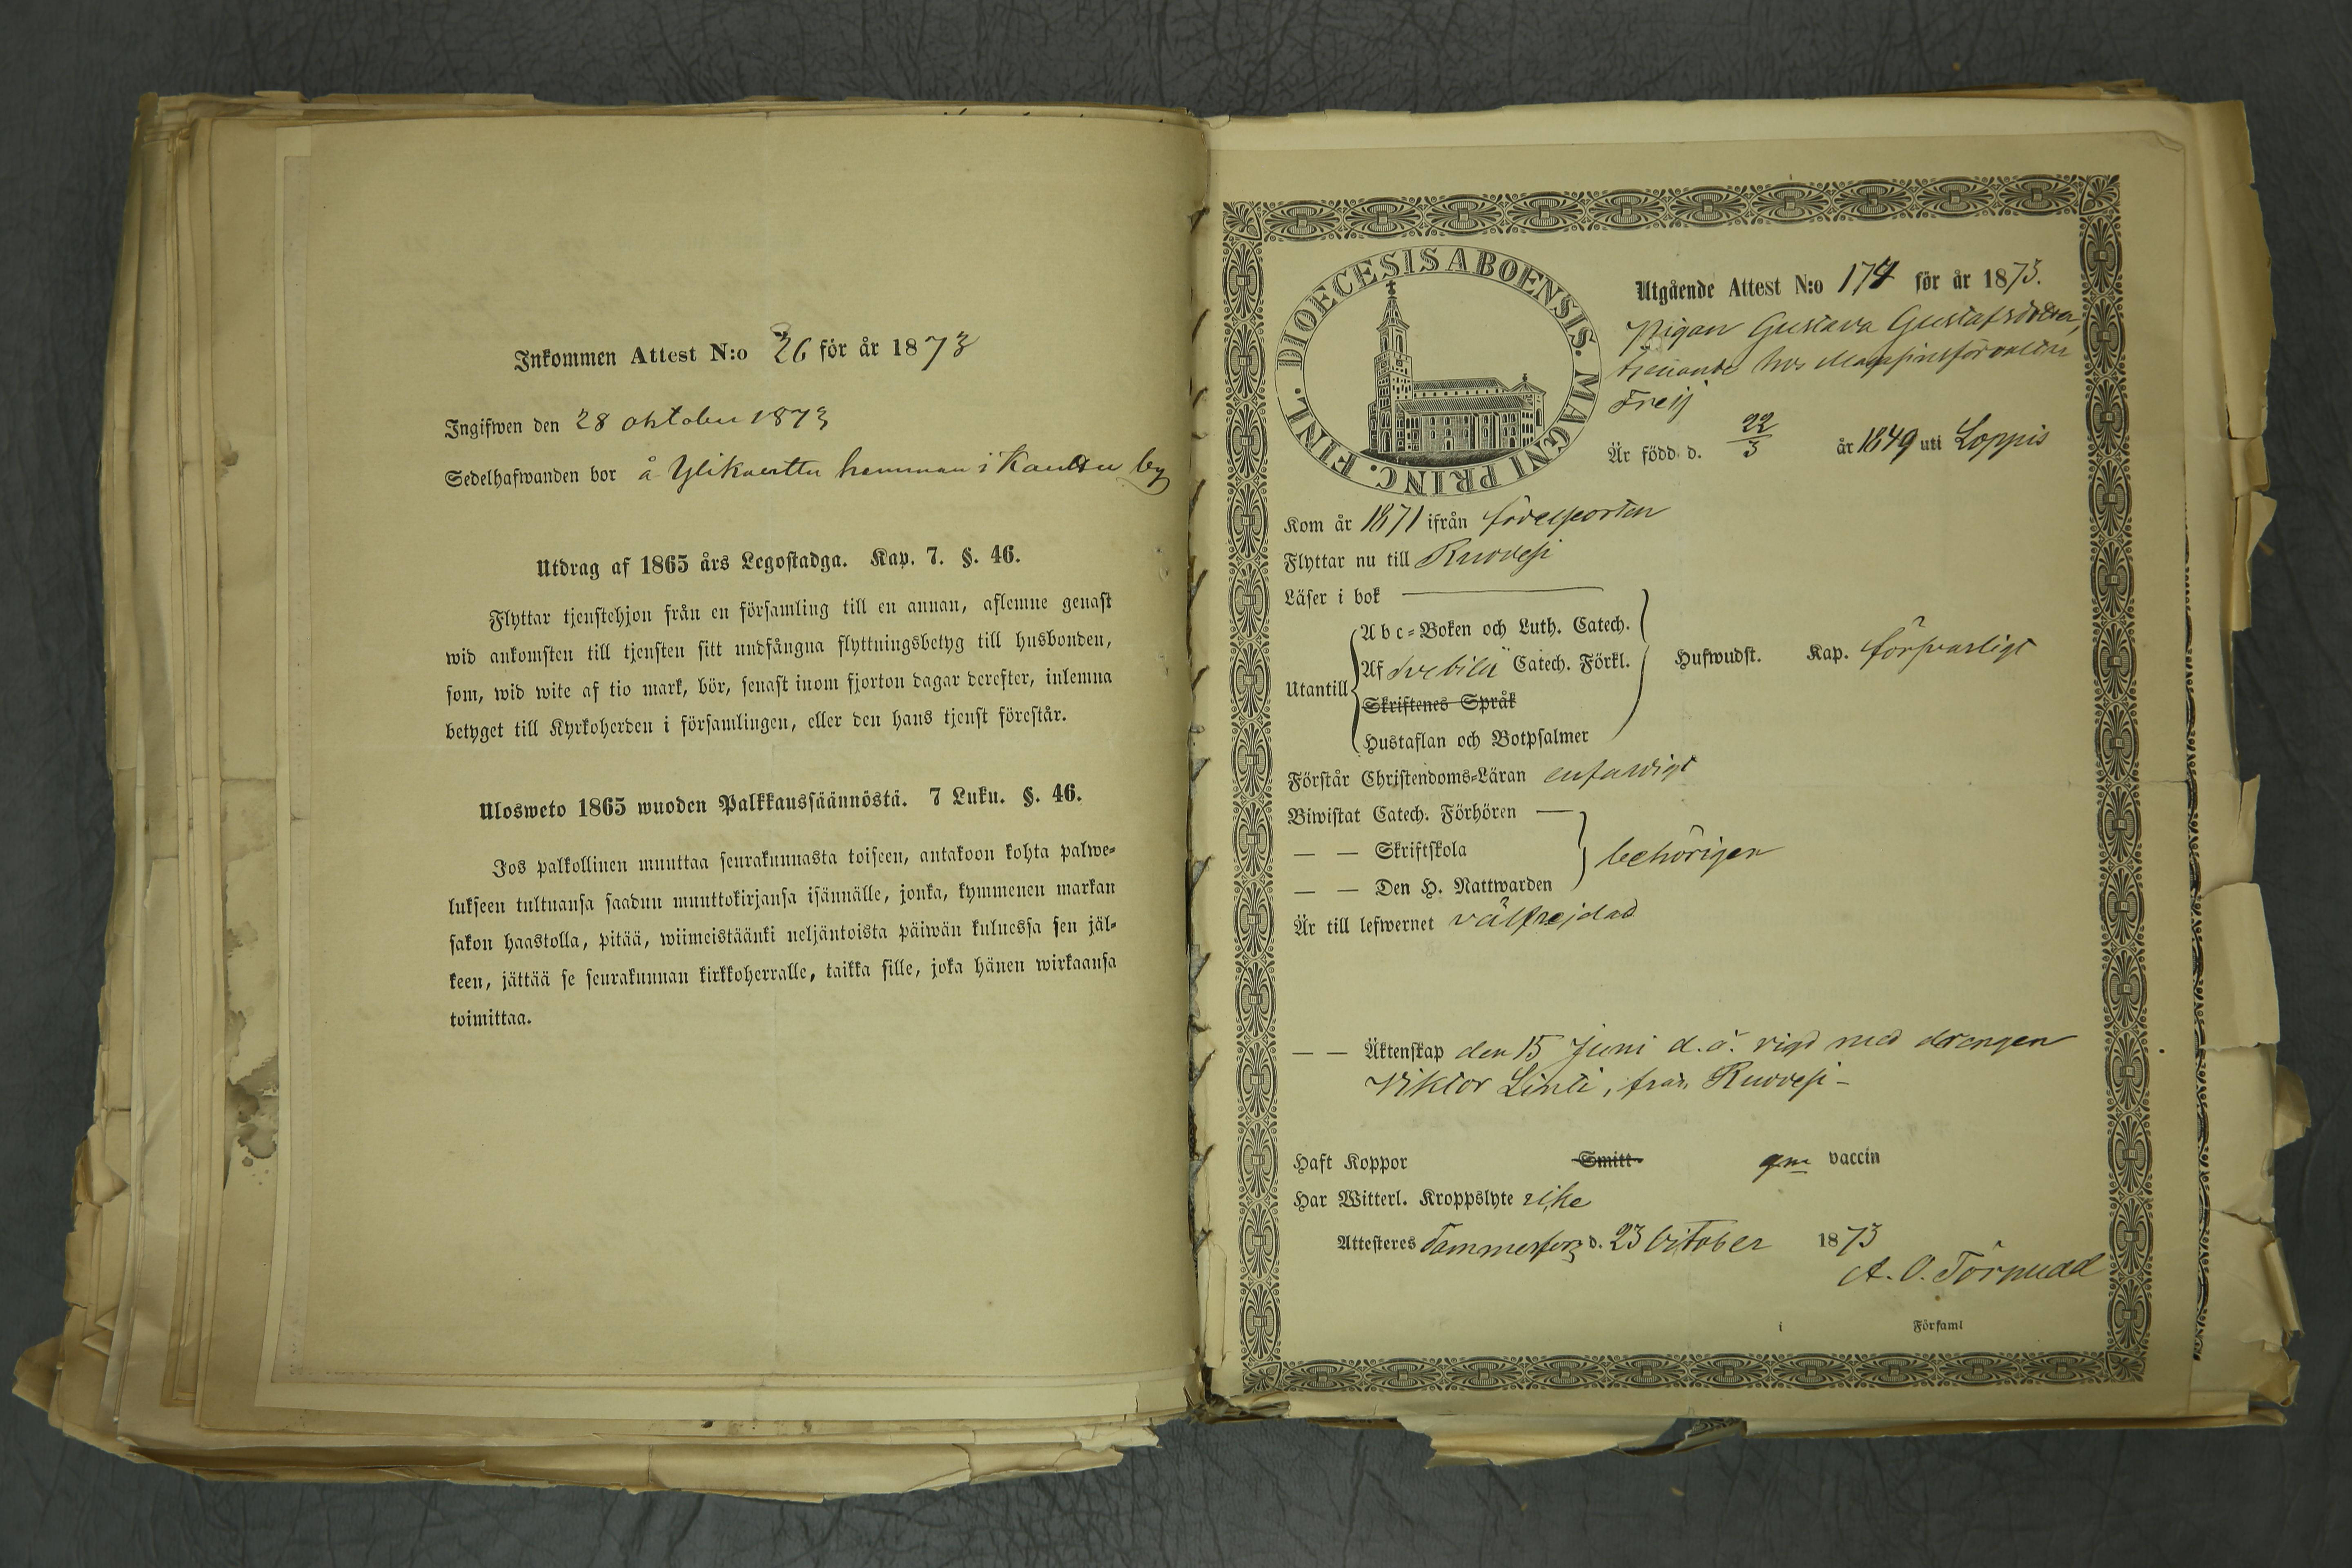 Inkommen Attest N:o 26 för år 1873
Ingifwen den 28 oktober 1873
Sedelhafwanden bor å Ylikverttu hemman i Kautu by
Utdrag af 1865 års Legostadga. Kap. 7. §. 46.
Flyttar tjenstehjon från en församling till en annan, aflemne genast
wid ankomsten till tjensten sitt undfångna flyttningsbetyg till husbonden,
som, wid wite af tio mark, bör, senast inom fjorton dagar derefter, inlemna
betyget till Kyrkoherden i församlingen, eller den hans tjenst förestår.
Ulosweto 1865 wuoden Palkkaussäännöstä. 7 Luku. §. 46.
Jos palkollinen muuttaa seurakunnasta toiseen, antakoon kohta palwe-
lukseen tultuansa saadun muuttokirjansa isännälle, jonka, kymmenen markan
sakon haastolla, pitää, wiimeistäänki neljäntoista päiwän kuluessa sen jäl-
keen, jättää se seurakunnan kirkkoherralle, taikka sille, joka hänen wirkaansa
toimittaa.
DIOECESIS ABOENSIS. MAGNI PRINC. FINL.
Utgående Attest N:o 174 för år 1873.
Pigan Gustava Gustafsdotter,
tjenande hos Magasinsförvaltar
Freij
Är född d. 22/3 år 1849 uti Loppis
Kom år 1871 ifrån födelseorten
Flyttar nu till Ruovesi
Läser i bok
Utantill
Abc-Boken och Luth. Catech.
Af Svebilii Catech. Förkl.
Skriftenes Språk
Hustaflan och Botpsalmer
Hufwudst. Kap. försvarligt
Förstår Christendoms-Läran enfaldigt
Biwistat Catech. Förhören —
— — Skriftskola
— — Den H. Nattwarden
behörigen
Är till lefwernet välfrejdad
— — Äktenskap den 15 Juni d.å. vigd med drängen
Viktor Linti, från Ruovesi –
Haft Koppor Smitt- gm vaccin
Har Witterl. Kroppslyte icke
Attesteres Tammerfors d. 23 October 1873
A. O. Törnudd
i Församl